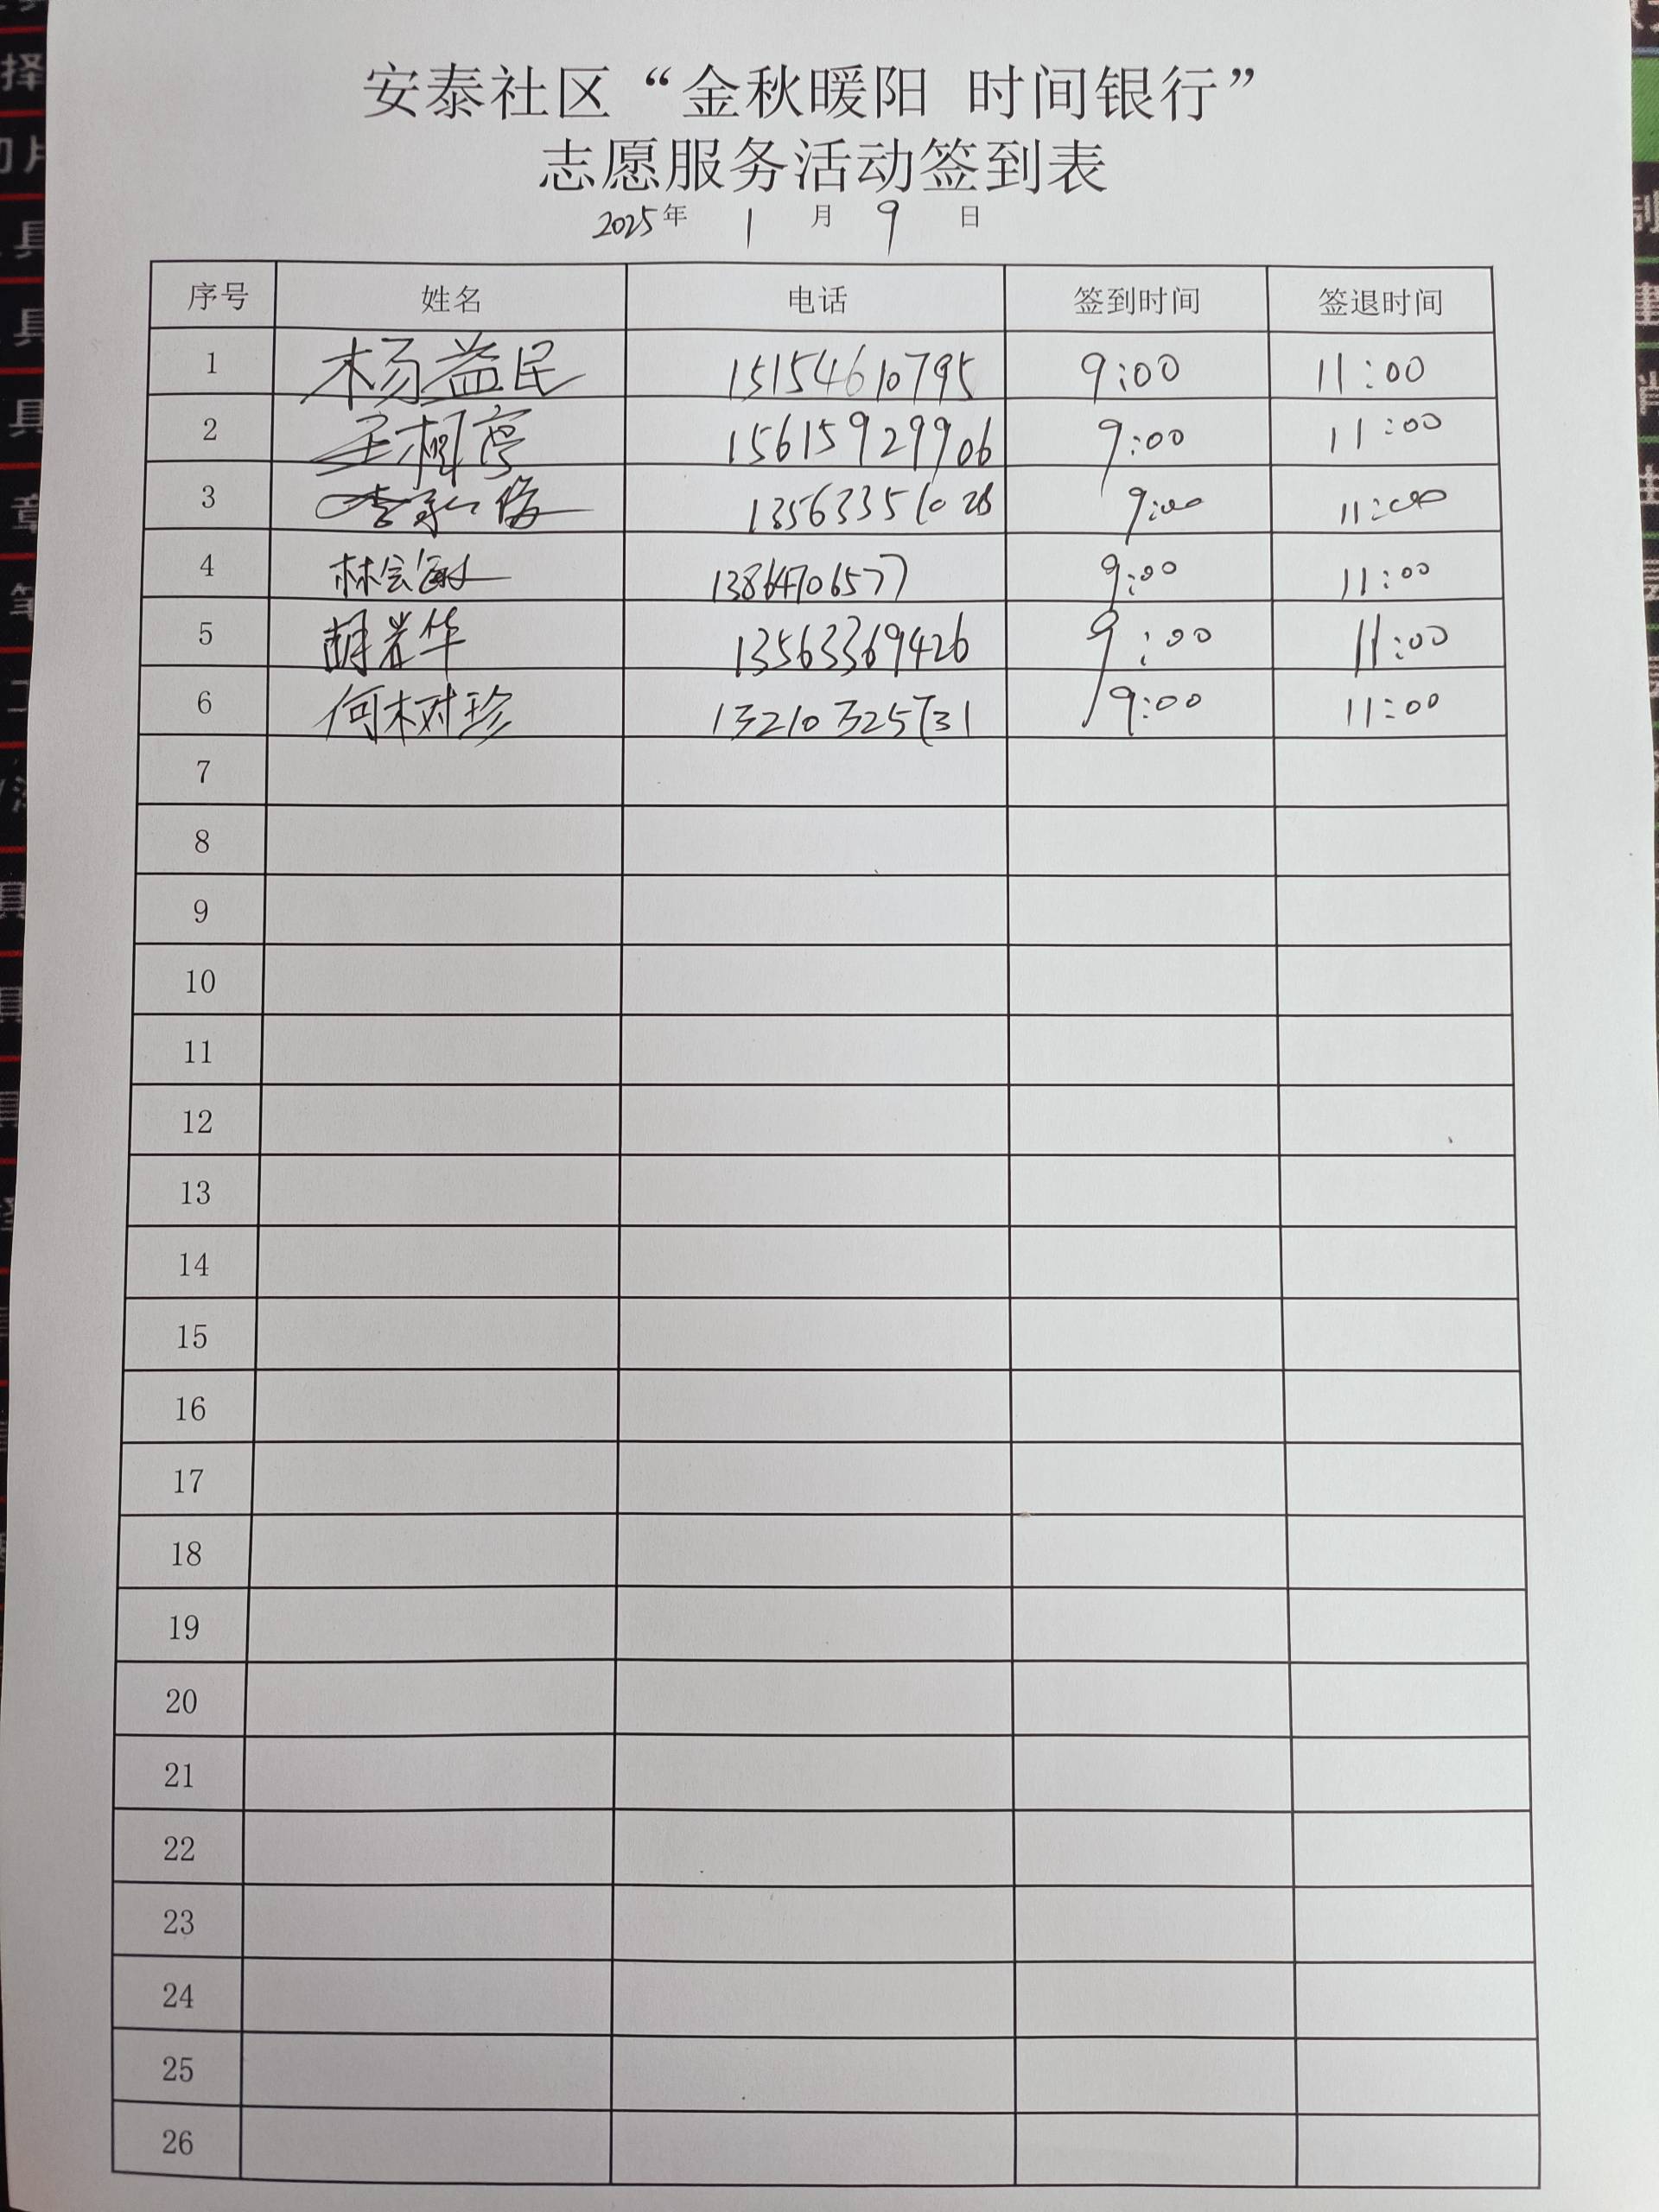 安泰社区“金秋暖阳 时间银行”
志愿服务活动签到表
2025年 1 月 9 日
序号 姓名 电话 签到时间 签退时间
1 杨益民 15154610795 9:00 11:00
2 15615929906 9:00 11:00
3 13563351028 9:00 11:00
4 林会敏 13864706577 9:00 11:00
5 胡岩华 13563369426 9:00 11:00
6 何树珍 13210325731 9:00 11:00
7
8
9
10
11
12
13
14
15
16
17
18
19
20
21
22
23
24
25
26